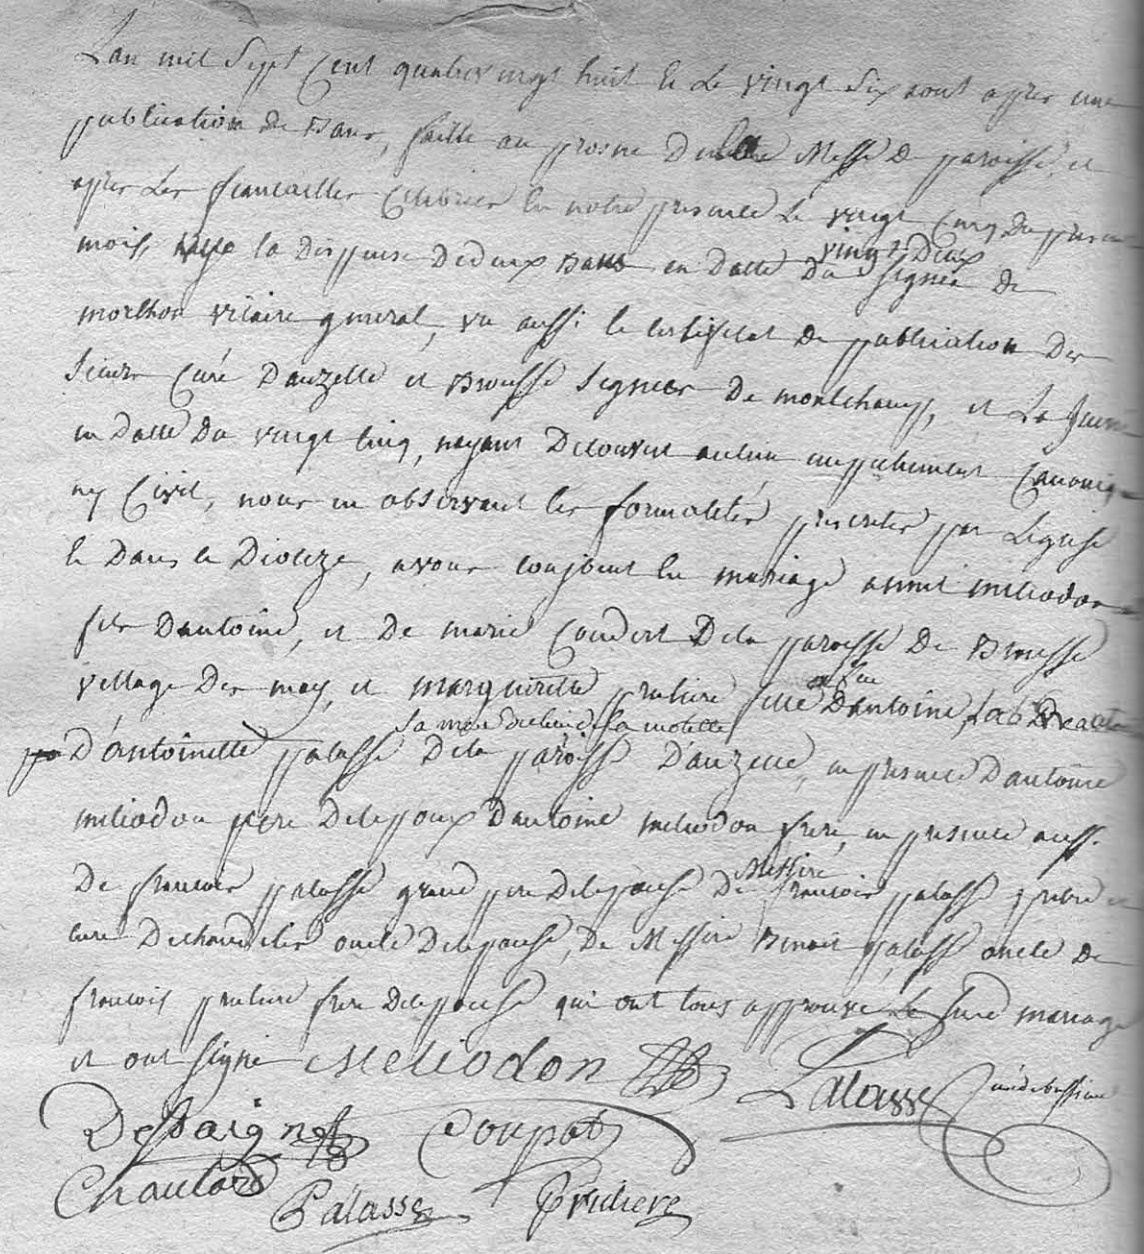 Lan mil Sept Cent quatre vingt huit & Le vingt Six aout apres une
publication de Bans, faitte au prosne de la Messe de paroisse, et
apres Les fiancailles Celebrées en notre presence Le vingt Cinq du present
mois, la dispense de deux Bans en datte du vingt Deux Signée de
morlhon vicaire general, vu aussi le certificat de publication des
Sieurs Curé Dauzelle et Brousse Signées De montchamp, et Le Jeune
en datte du vingt Cinq, nayant Decouvert aucun empechement Canonique
ny Civil, nous en observant les formalités prescrites par Leglise
& Dans ce Dioceze, avons conjoint en mariage annet meliodon
fils Dantoine, et De marie Coudert De la paroisse De Brousse
village Des may, et marguerite prulière fille a feu Dantoine,
D'antoinette palasse Sa mere De la paroisse D'auzelle, en presence Dantoine
meliodon pere De lepoux Dantoine meliodon frere, en presence aussi
De francois palasse grand pere De lepouse De Messire francois palasse prêtre et
curé oncle De lepouse, De Messire Benoit palasse oncle de
francois prulière frere De lepouse qui ont tous approuvé Le mariage
et ont signé Meliodon Palasse
Dessaigne Coupat
Chautard Palasse Prulière